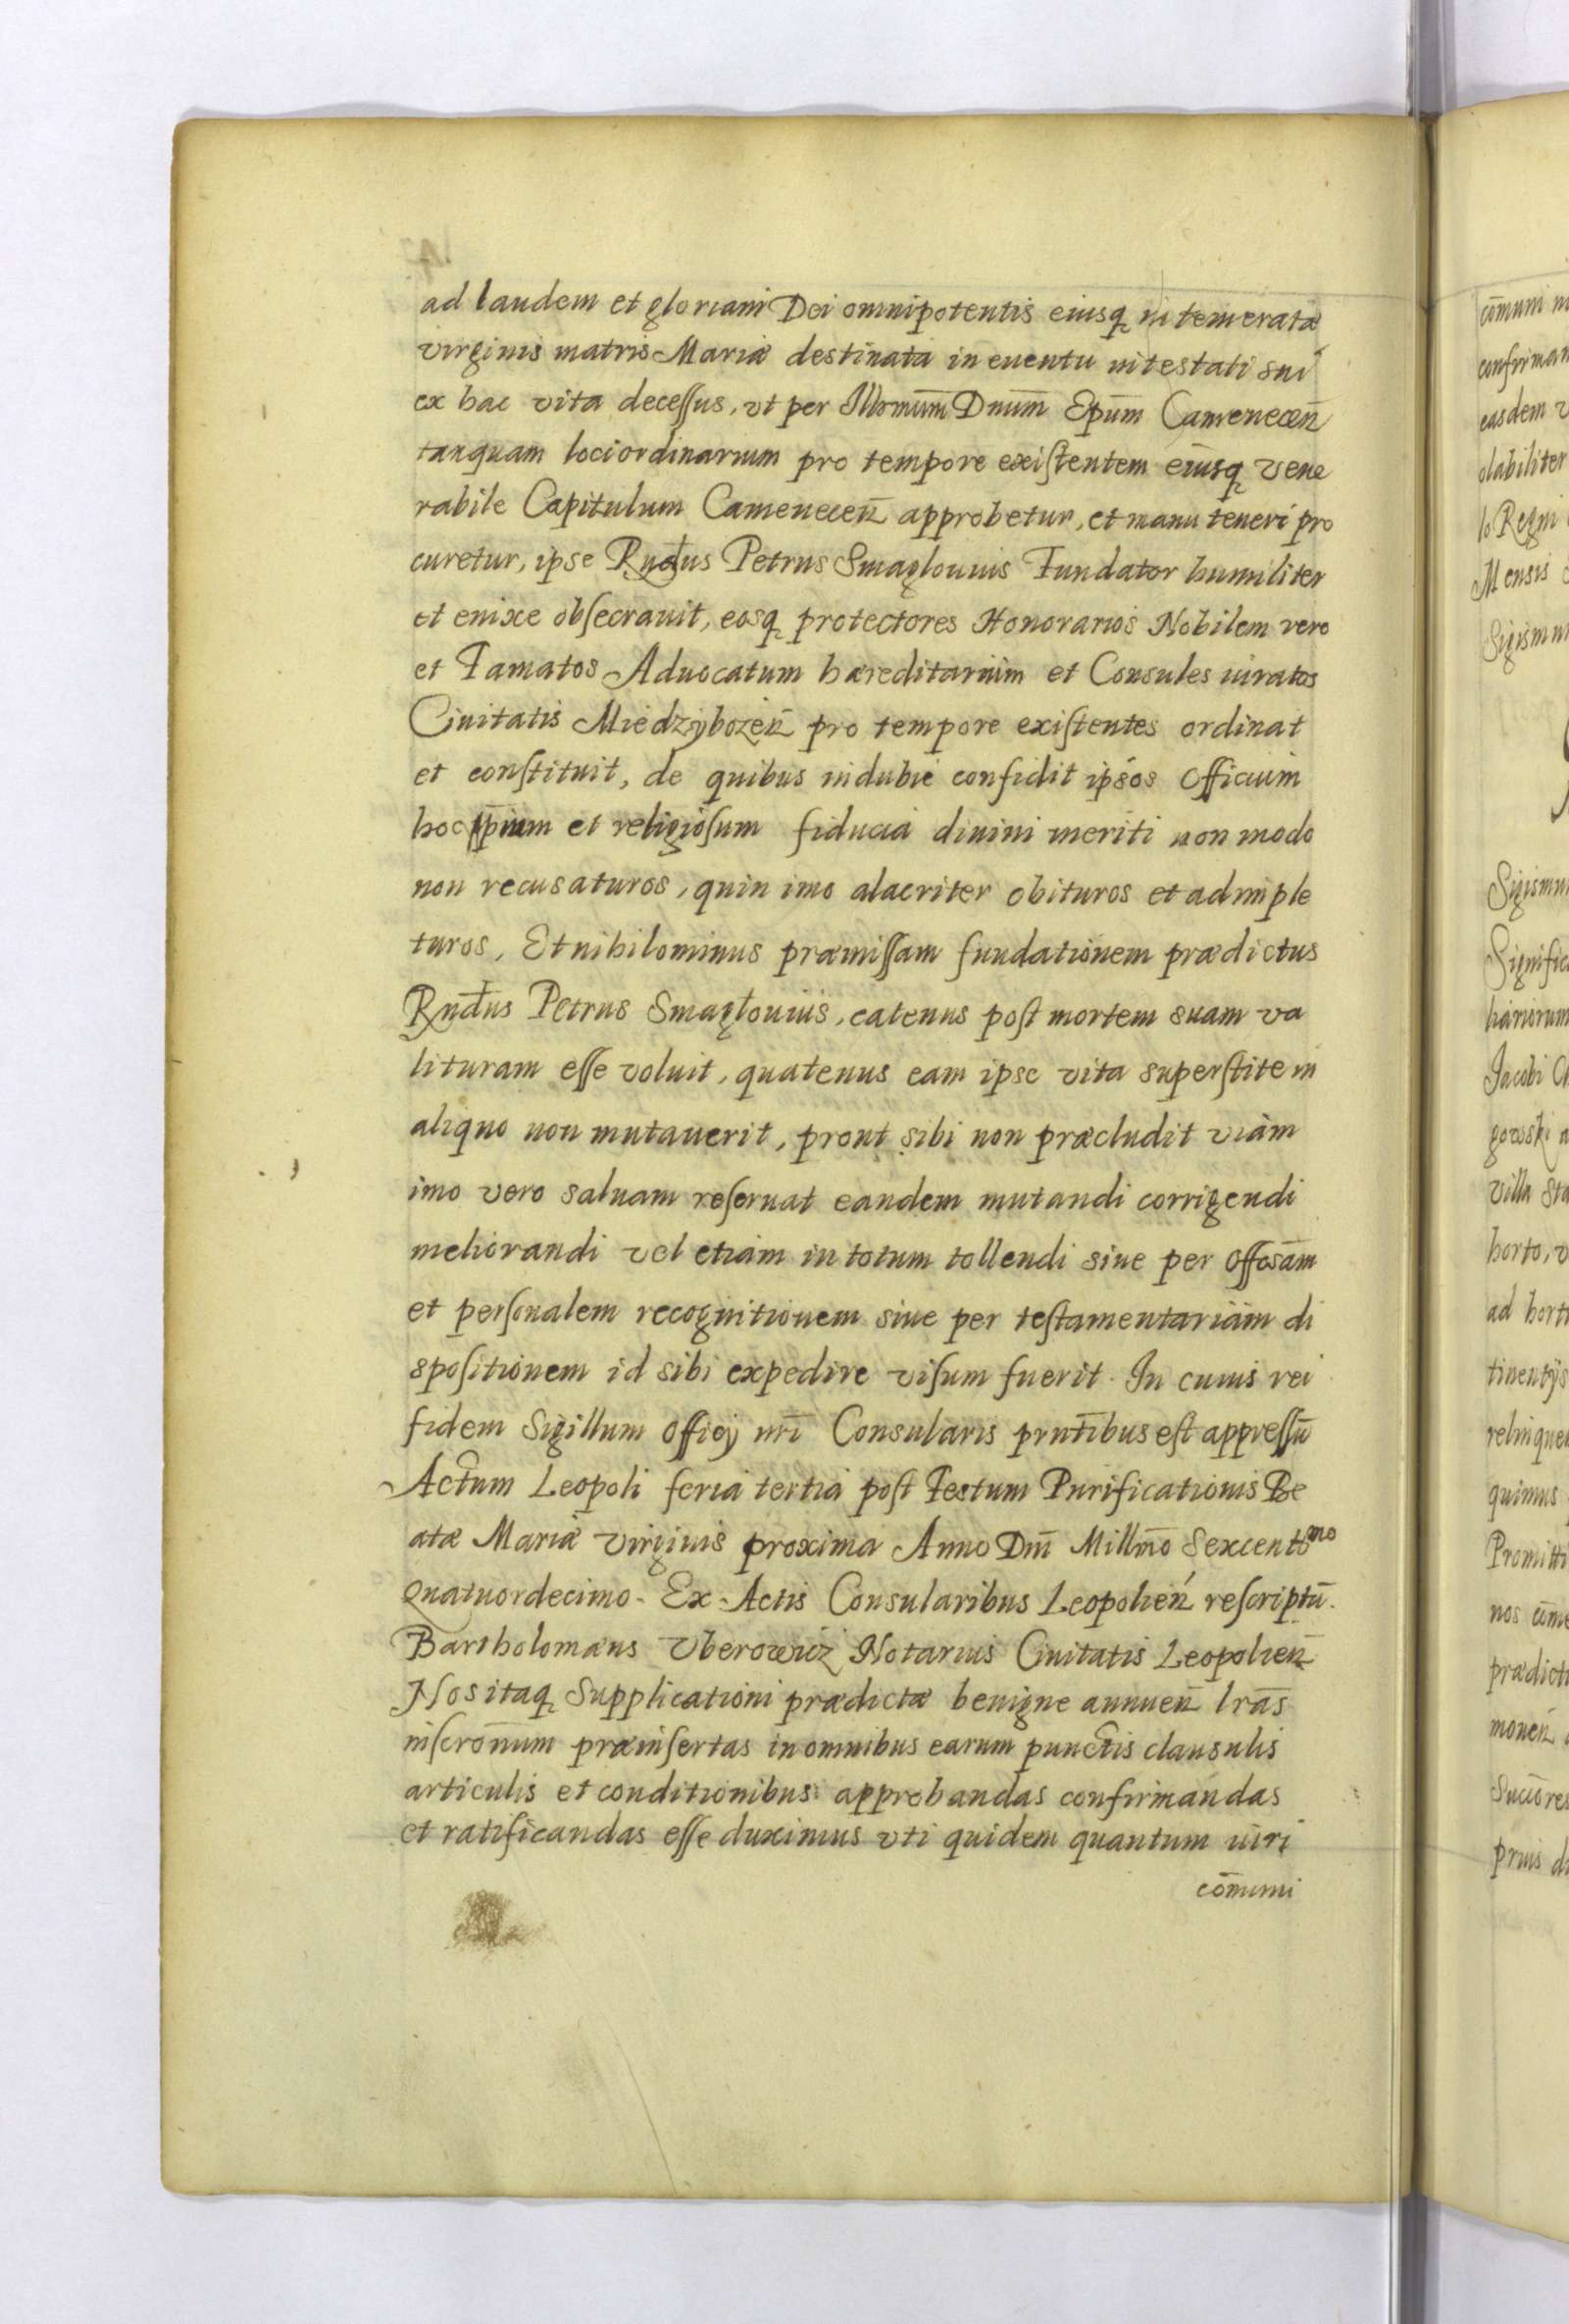 ad laudem et gloriam Dei omnipotentis eiusq intemeratæ
virginis matris Mariæ destinata in euentu intestati sui
ex hac vita decessus, vt per Illrmum̄ Dnum̄ Epum̄ Camenecen̄
tanquam loci ordinarium pro tempore existentem eiusq vene
rabile Capitulum Camenecen̄ approbetur, et manu teneri pro
curetur, ipse Rndus Petrus Smaglouius Fundator humiliter
et enixe obsecrauit, eosq protectores Honorarios Nobilem vero
et Famatos Aduocatum hæreditarium et Consules iuratos
Ciuitatis Miedzybozen̄ pro tempore existentes ordinat
et constituit, de quibus indubie confidit ipsos officium
hoc pium et religiosum fiducia diuini meriti non modo
non recusaturos, quin imo alacriter obituros et adimple
turos, Et nihilominus præmissam fundationem prædictus
Rndus Petrus Smaglouius, eatenus post mortem suam va
lituram esse voluit, quatenus eam ipse vita superstite in
aliquo non mutauerit, prout sibi non præcludit viam
imo vero saluam reseruat eandem mutandi corrigendi
meliorandi vel etiam in totum tollendi siue per offosam̄
et personalem recognitionem siue per testamentariam di
spositionem id sibi expedire visum fuerit. In cuius rei
fidem Sigillum officij nrī Consularis prntībus est appressū
Actum Leopoli feria tertia post Festum Purificationis Be
atæ Mariæ virginis proxima Anno Dnī Millmō Sexcentōmo
Quatuordecimo. Ex Actis Consularibus Leopolien̄ rescriptū.
Bartholomæus Vberowicz Notarius Ciuitatis Leopolien̄
Nos itaq Supplicationi prædictæ benigne annuen̄ lrās
inscronum̄ præinsertas in omnibus earum punctis clausulis
articulis et conditionibus approbandas confirmandas
et ratificandas esse duximus vti quidem quantum iuri
cōmuni
cōmuni
easdem
olabiliter
Regni
Mensis
Jacobi
gowski
villa
horto,
ad
tinentijs
quimus
nos